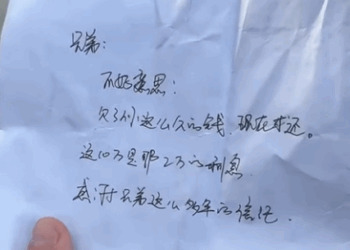 兄弟:
不好意思:
欠了你这么久的钱,现在才还。
这10万是那2万的利息,
感谢兄弟这么多年的信任.